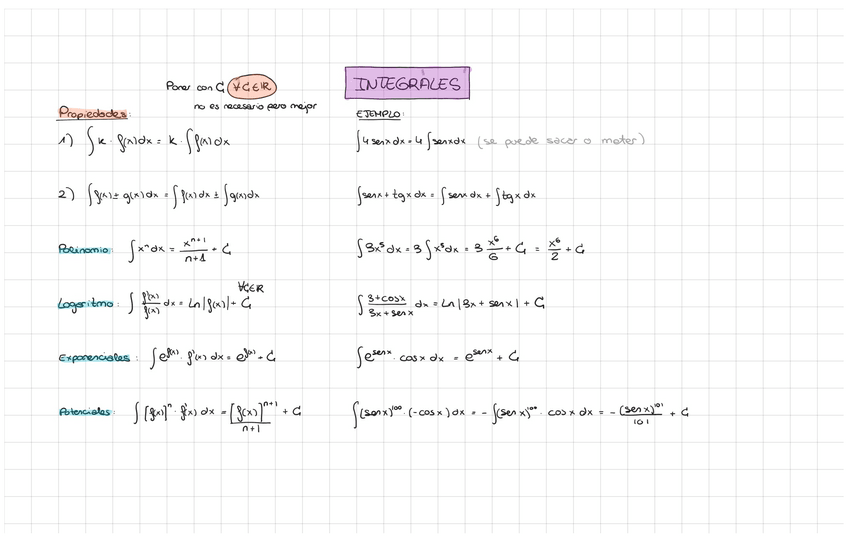 INTEGRALES
Poner con C ∀C∈ℝ
no es necesario pero mejor
Propiedades:
EJEMPLO:
1) ∫ k · f(x) dx = k · ∫ f(x) dx
∫ 4 senx dx = 4 ∫ senx dx (se puede sacar o meter)
2) ∫ f(x) ± g(x) dx = ∫ f(x) dx ± ∫ g(x) dx
∫ senx + tgx dx = ∫ senx dx + ∫ tgx dx
Polinomio: ∫ xⁿ dx = xⁿ⁺¹/(n+1) + C
∫ 3x⁵ dx = 3 ∫ x⁵ dx = 3 x⁶/6 + C = x⁶/2 + C
Logaritmo: ∫ f'(x)/f(x) dx = Ln|f(x)| + C ∀C∈ℝ
∫ (3+cosx)/(3x+senx) dx = Ln|3x + senx| + C
Exponenciales: ∫ e^f(x) · f'(x) dx = e^f(x) + C
∫ e^senx · cosx dx = e^senx + C
Potenciales: ∫ [f(x)]ⁿ · f'(x) dx = [f(x)]ⁿ⁺¹/(n+1) + C
∫ (senx)¹⁰⁰ · (-cosx) dx = - ∫ (senx)¹⁰⁰ · cosx dx = - (senx)¹⁰¹/101 + C